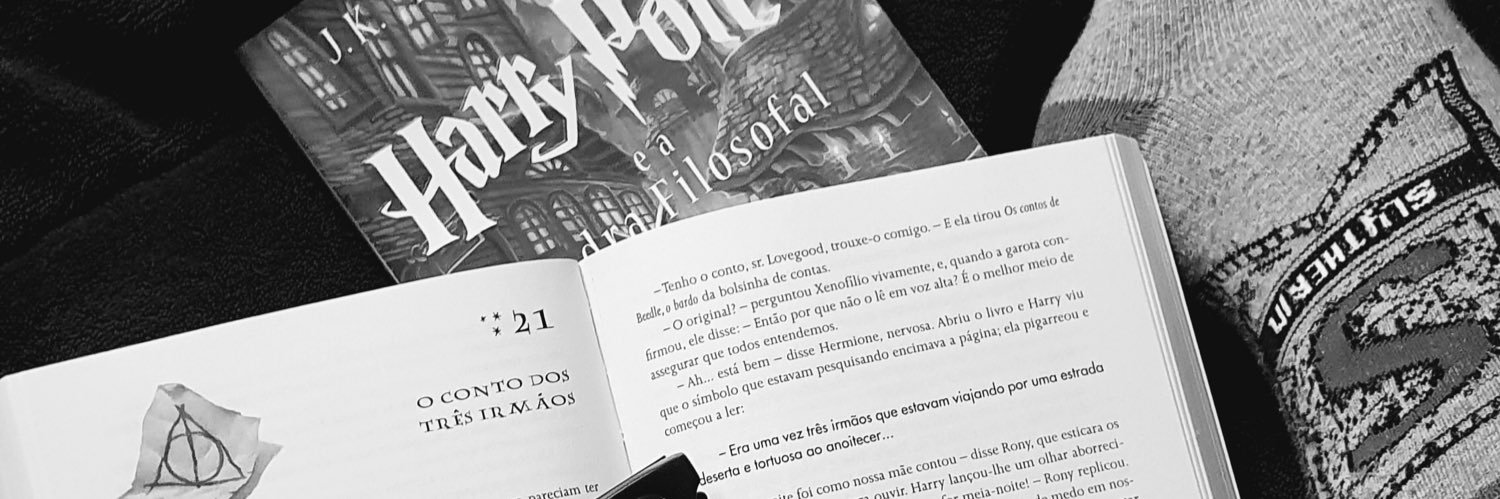 J.K.
Harry Pott
e a
dra Filosofal
21
O CONTO DOS
TRÊS IRMÃOS
pareciam ter
–Tenho o conto, sr. Lovegood, trouxe-o comigo. – E ela tirou Os contos de
Beedle, o bardo da bolsinha de contas.
– O original? – perguntou Xenofílio vivamente, e, quando a garota con-
firmou, ele disse: – Então por que não o lê em voz alta? É o melhor meio de
assegurar que todos entendemos.
– Ah... está bem – disse Hermione, nervosa. Abriu o livro e Harry viu
que o símbolo que estavam pesquisando encimava a página; ela pigarreou e
começou a ler:
– Era uma vez três irmãos que estavam viajando por uma estrada
deserta e tortuosa ao anoitecer...
foi como nossa mãe contou – disse Rony, que esticara os
ouvir. Harry lançou-lhe um olhar aborreci-
meia-noite! – Rony replicou.
medo em nos-
SLYTHERIN
S